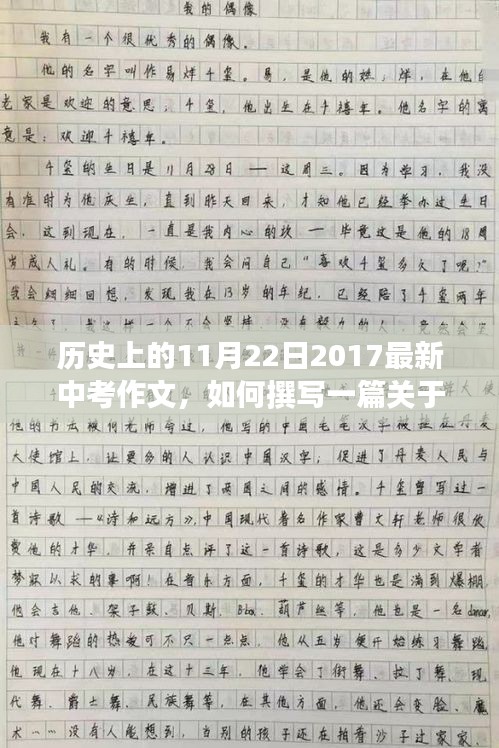 我的偶像
我有一个很优秀的偶像。
他的名字叫作易烊千玺。易，是他的姓；烊，在他的
老家是欢迎的意思；千玺，他出生在千禧年。他名字的寓
意是：欢迎千禧年。
千玺的生日是11月28日——这周三。因为学习，我没
有准时为他庆生，直到昨天回来，才知他已经举办过生日
会，这到现在，一直是我内心的坎——毕竟这是他的18周
岁成人礼。有的时候，我会问自己“喜欢千玺多久了呢？”
我会细细回想，发现我在13岁的年纪，已经陪了千玺两年
历史上的11月22日2017最新
中考作文，如何撰写一篇关于
他的书法被何老师夸过，他写的中国毛笔汉字被挂在丹麦
大使馆上，让更多的人认识中国汉字；促进了丹麦人民与
中国人民的交流，增进了两国之间的感情。千玺曾写过一
首诗歌——《诗和远方》，中国现代著名作家曹文轩老师很欣
赏他的才华，并亲自点评了这一首诗歌，这是多少文学者
梦寐以求的事啊！在音乐方面，千玺的才华也是满到爆棚，
他会吉他、架子鼓、贝斯、Bbox、葫芦丝等，他也是一名dancer，
他对舞蹈的热爱可不只一点点，他从五岁便开始练习舞蹈
他现在十八岁，在这十三年，他学会了街舞、拉丁舞、现
代舞、爵士舞、民族舞等，在其他方面，他还会变脸、魔
术……没有人能想到，当别的孩子还在拍着沙子过家家